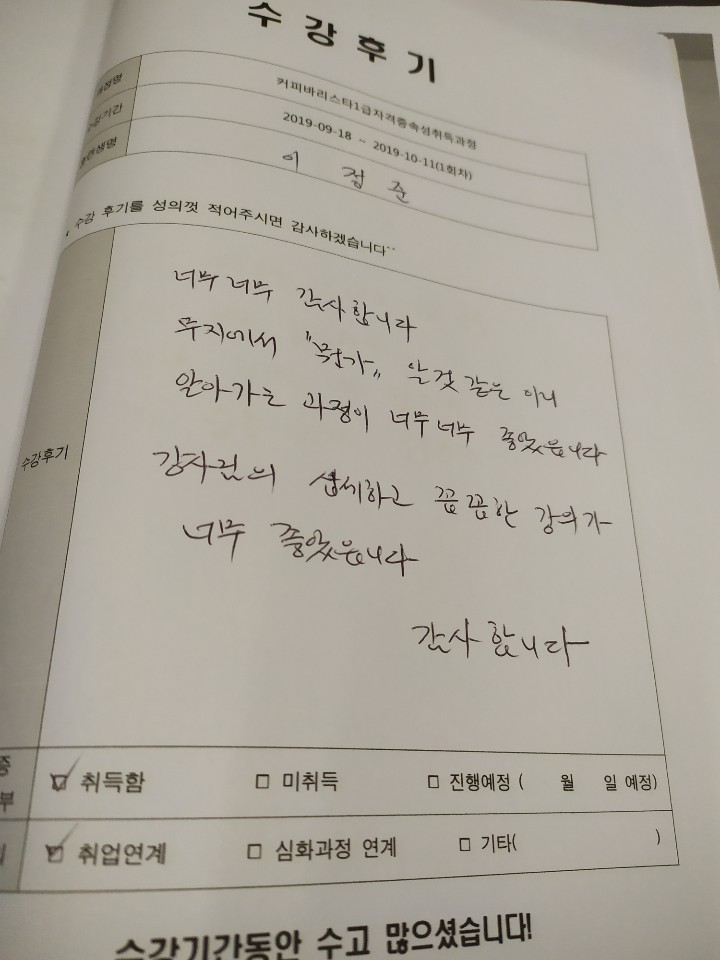 수강후기
과정명 커피바리스타1급자격증속성취득과정
수강기간 2019-09-18 ~ 2019-10-11(1회차)
훈련생명 이 정 준
수강 후기를 성의껏 적어주시면 감사하겠습니다^^
너무 너무 감사합니다
무지에서 "뭔가" 알것 같은 이니
알아가는 과정이 너무너무 좋았읍니다
수강후기
강사님의 섬세하고 꼼꼼한 강의가
너무 좋았읍니다
감사합니다
증
부
☑ 취득함 □ 미취득 □ 진행예정 ( 월 일 예정)
☑ 취업연계 □ 심화과정 연계 □ 기타( )
수강기간동안 수고 많으셨습니다!